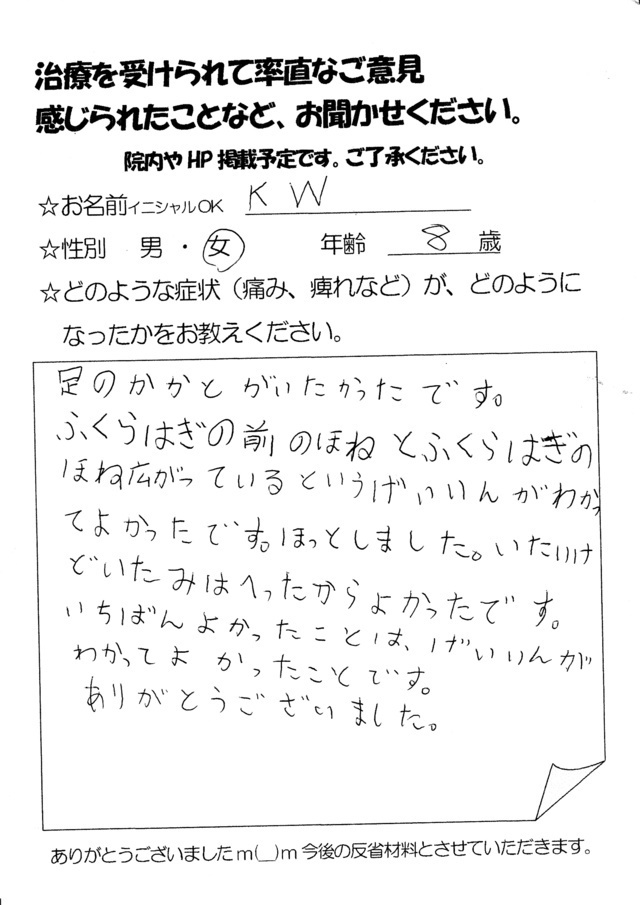 治療を受けられて率直なご意見
感じられたことなど、お聞かせください。
院内やHP掲載予定です。ご了承ください。
☆お名前イニシャルOK K W
☆性別 男・女 年齢 8 歳
☆どのような症状（痛み、痺れなど）が、どのように
なったかをお教えください。
足のかかとがいたかったです。
ふくらはぎの前のほねとふくらはぎの
ほね広がっているというげいいんがわかっ
てよかったです。ほっとしました。いたいけ
どいたみはへったからよかったです。
いちばんよかったことは、げいいんが
わかってよかったことです。
ありがとうございました。
ありがとうございましたm(__)m今後の反省材料とさせていただきます。